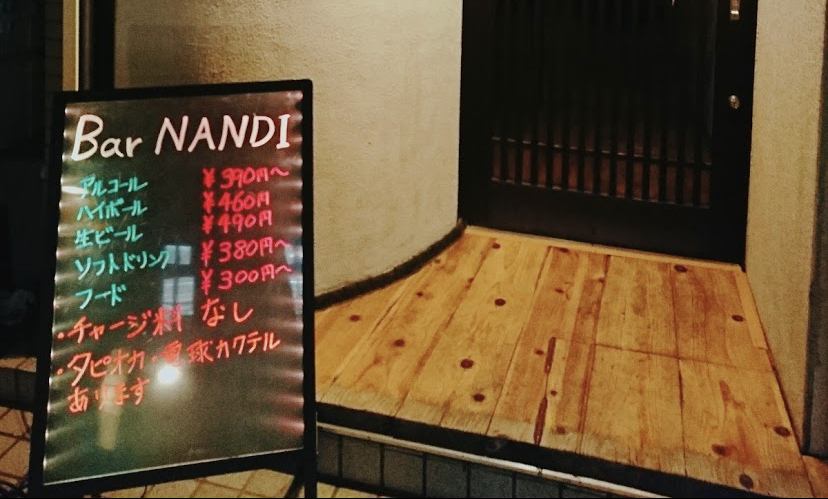 Bar NANDI
アルコール ¥390円〜
ハイボール ¥460円
生ビール ¥490円
ソフトドリンク ¥380円〜
フード ¥300円〜
・チャージ料 なし
・タピオカ・電球カクテル
あります